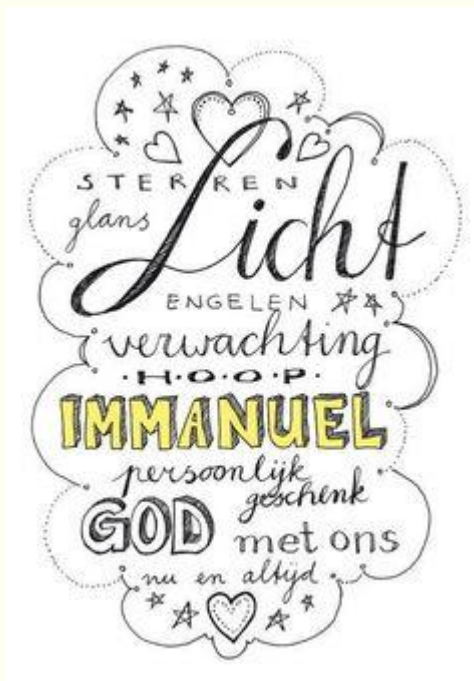 STERREN
glans
Licht
ENGELEN
verwachting
·H·O·O·P·
IMMANUEL
persoonlijk
geschenk
GOD met ons
nu en altijd